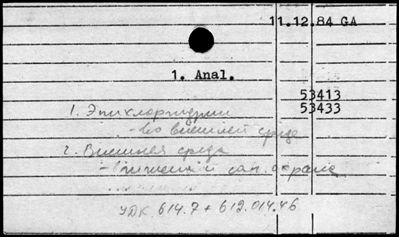 11.12.84 GA
1. Anal.
53413
1. Эпихлоргидрин 53433
- во внешней среде
2. Внешняя среда
- гигиена и сан. охрана
УДК 614.7 + 612.014.46